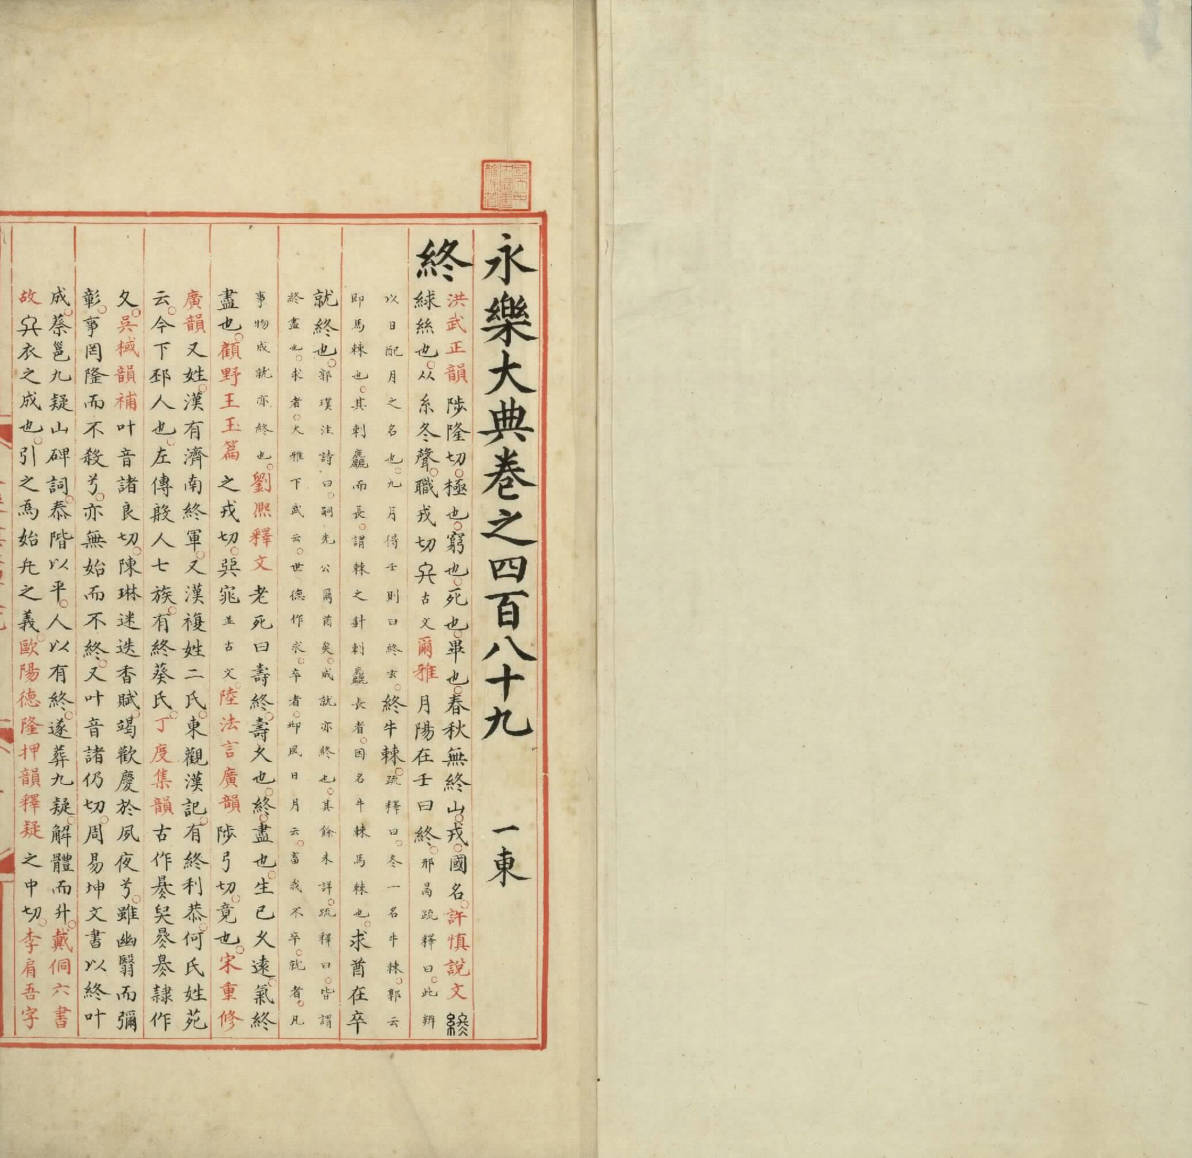 永樂大典卷之四百八十九 一東
終
洪武正韻陟隆切極也窮也死也畢也春秋無終山戎國名許慎說文
綠絲也从糸冬聲職戎切古文爾雅月陽在壬曰終邢昺疏釋曰此辨
以日配月之名也九月得壬則曰終玄終牛棘疏釋曰終一名牛棘郭云
即馬棘也其刺麤而長謂棘之針刺麤長者因名牛棘馬棘也求酋在卒
就終也郭璞注詩曰嗣先公爾酋矣成就亦終也其餘未詳疏釋曰皆謂
終盡也求者大雅下武云世德作求卒者邶風日月云畜我不卒就者凡
事物成就亦終也劉熙釋文老死曰壽終壽久也終盡也生已久遠氣終
盡也顧野王玉篇之戎切並古文陸法言廣韻陟弓切竟也宋重修
廣韻又姓漢有濟南終軍又漢複姓二氏東觀漢記有終利恭何氏姓苑
云今下邳人也左傳殷人七族有終葵氏丁度集韻古作隸作
夂吳棫韻補叶音諸良切陳琳迷迭香賦竭歡慶於夙夜兮雖幽翳而彌
彰事罔隆而不殺兮亦無始而不終又叶音諸仍切周易坤文書以終叶
成蔡邕九疑山碑詞泰階以平人以有終遂葬九疑解體而升戴侗六書
故衣之成也引之為始之義歐陽德隆押韻釋疑之中切李肩吾字